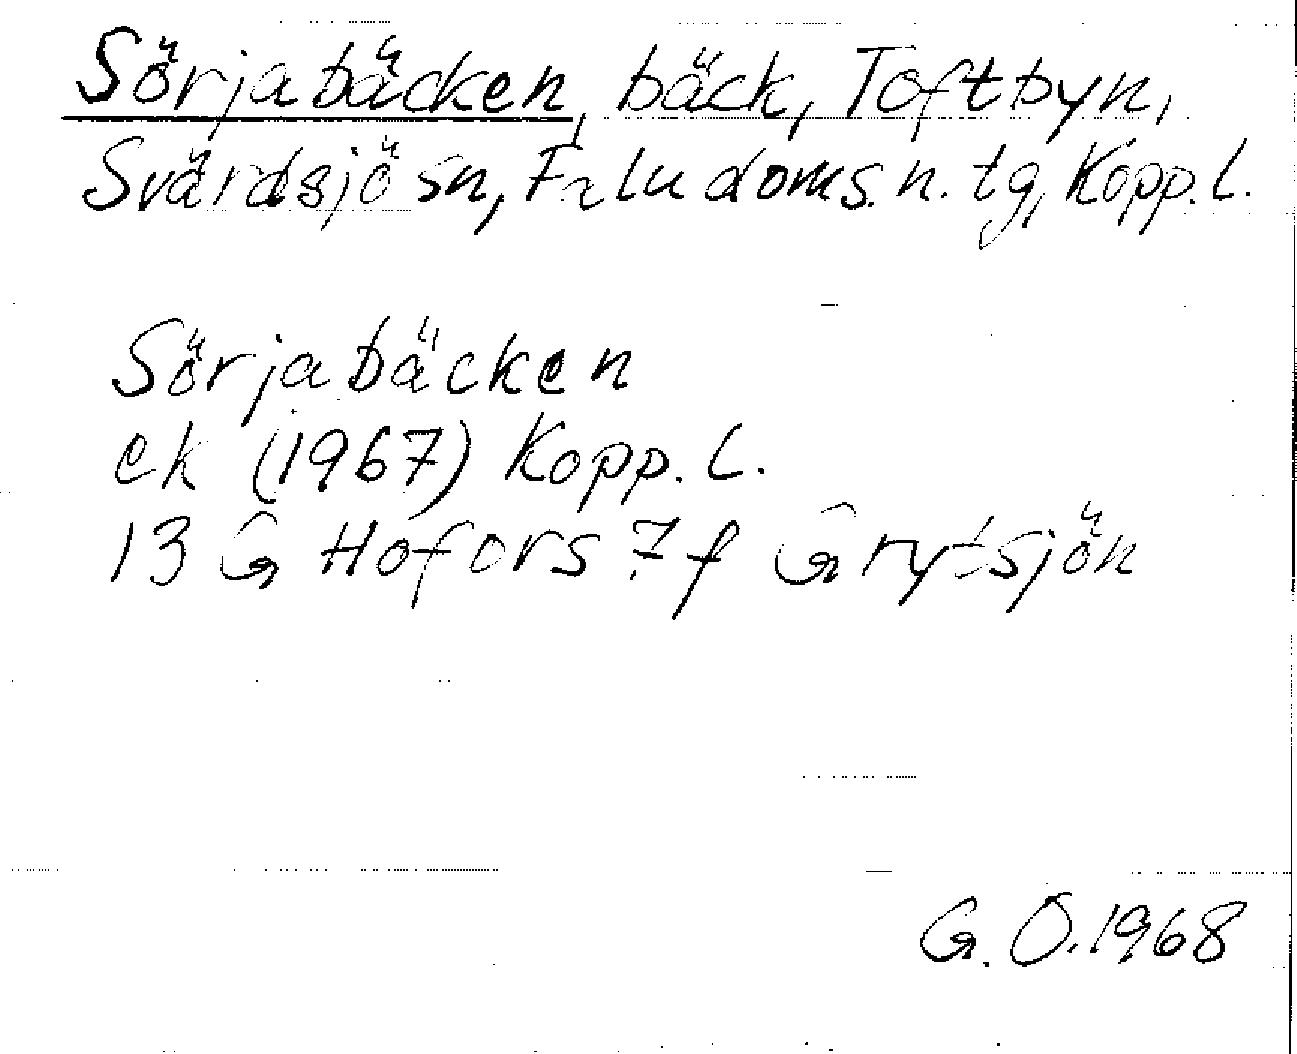 Sörjabäcken, bäck, Toftbyn,
Svärdsjö sn, Falu doms. n. tg, Kopp. l.
Sörjabäcken
ek (1967) Kopp. L.
13 G Hofors 7 f Grytsjön
G. O. 1968